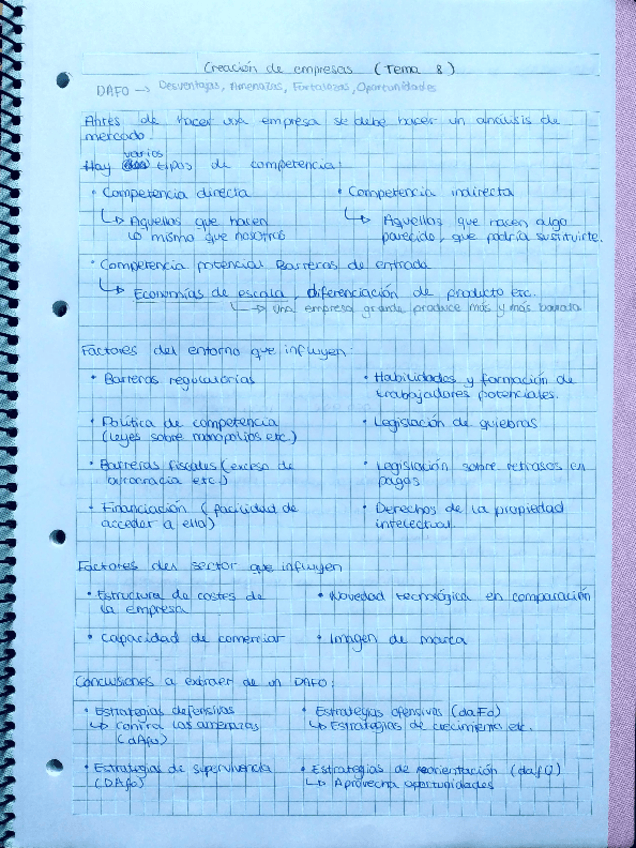 Creación de empresas (Tema 8)
DAFO → Desventajas, Amenazas, Fortalezas, Oportunidades
Antes de hacer una empresa se debe hacer un análisis de
mercado.
varios
Hay tipos de competencia:
• Competencia directa
↳ Aquellos que hacen
lo mismo que nosotros
• Competencia indirecta
↳ Aquellos que hacen algo
parecido, que podría sustituirte.
• Competencia potencial Barreras de entrada
↳ Economías de escala, diferenciación de producto etc.
↳ Una empresa grande produce más y más barata
Factores del entorno que influyen:
• Barreras regulatorias
• Habilidades y formación de
trabajadores potenciales.
• Política de competencia
(leyes sobre monopolios etc.)
• Legislación de quiebras
• Barreras fiscales (exceso de
burocracia etc.)
• Legislación sobre retrasos en
pagos
• Financiación (facilidad de
acceder a ella)
• Derechos de la propiedad
intelectual.
Factores del sector que influyen
• Estructura de costes de
la empresa
• Novedad tecnológica en comparación
• Capacidad de comerciar
• Imagen de marca
Conclusiones a extraer de un DAFO:
• Estrategias defensivas
↳ Contra las amenazas
(dAfo)
• Estrategias ofensivas (daFo)
↳ Estrategias de crecimiento etc.
• Estrategias de supervivencia
(DAfo)
• Estrategias de reorientación (dafO)
↳ Aprovecha oportunidades